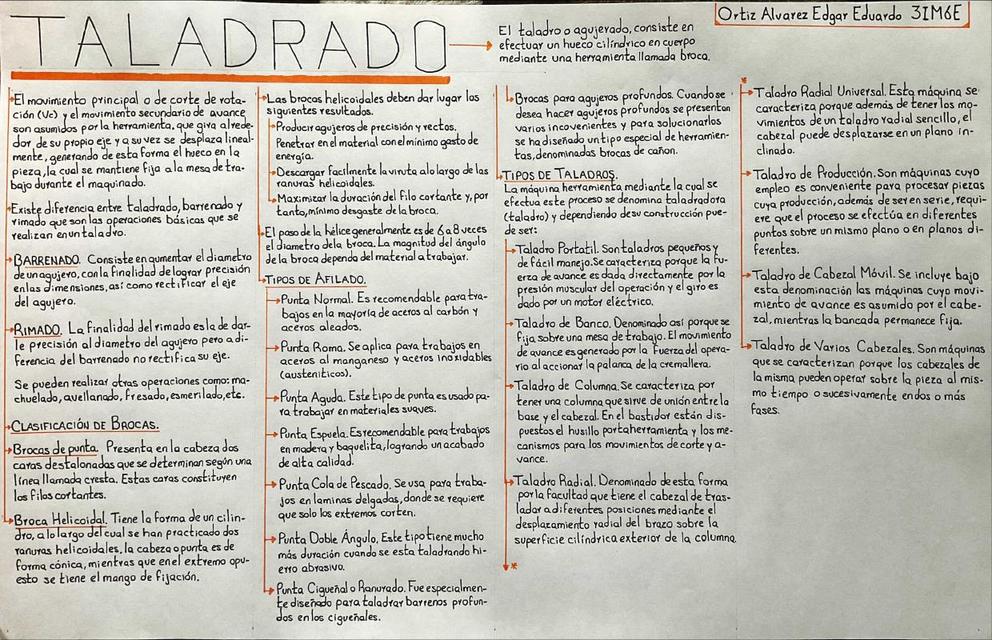 TALADRADO
El taladro o agujerado, consiste en
efectuar un hueco cilíndrico en cuerpo
mediante una herramienta llamada broca.
Ortiz Alvarez Edgar Eduardo 3IM6E
El movimiento principal o de corte de rota-
ción (Vc) y el movimiento secundario de avance
son asumidos por la herramienta, que gira alrede-
dor de su propio eje y a su vez se desplaza lineal-
mente, generando de esta forma el hueco en la
pieza, la cual se mantiene fija a la mesa de tra-
bajo durante el maquinado.
Existe diferencia entre taladrado, barrenado y
rimado que son las operaciones básicas que se
realizan en un taladro.
BARRENADO. Consiste en aumentar el diametro
de un agujero, con la finalidad de lograr precisión
en las dimensiones, así como rectificar el eje
del agujero.
RIMADO. La finalidad del rimado es la de dar-
le precisión al diametro del agujero pero a di-
ferencia del barrenado no rectifica su eje.
Se pueden realizar otras operaciones como: ma-
chuelado, avellanado, fresado, esmerilado, etc.
CLASIFICACIÓN DE BROCAS.
Brocas de punta. Presenta en la cabeza dos
caras destalonadas que se determinan según una
línea llamada cresta. Estas caras constituyen
los filos cortantes.
Broca Helicoidal. Tiene la forma de un cilin-
dro, a lo largo del cual se han practicado dos
ranuras helicoidales, la cabeza o punta es de
forma cónica, mientras que en el extremo opu-
esto se tiene el mango de fijación.
Las brocas helicoidales deben dar lugar los
siguientes resultados.
Producir agujeros de precisión y rectos.
Penetrar en el material con el mínimo gasto de
energía.
Descargar facilmente la viruta a lo largo de las
ranuras helicoidales.
Maximizar la duración del filo cortante y, por
tanto, mínimo desgaste de la broca.
El paso de la hélice generalmente es de 6 a 8 veces
el diametro de la broca. La magnitud del ángulo
de la broca depende del material a trabajar.
TIPOS DE AFILADO.
Punta Normal. Es recomendable para tra-
bajos en la mayoría de aceros al carbón y
aceros aleados.
Punta Roma. Se aplica para trabajos en
aceros al manganeso y aceros inoxidables
(austeníticos).
Punta Aguda. Este tipo de punta es usado pa-
ra trabajar en materiales suaves.
Punta Espuela. Es recomendable para trabajos
en madera y baquelita, logrando un acabado
de alta calidad.
Punta Cola de Pescado. Se usa para traba-
jos en laminas delgadas, donde se requiere
que solo los extremos corten.
Punta Doble Ángulo. Este tipo tiene mucho
más duración cuando se esta taladrando hi-
erro abrasivo.
Punta Cigueñal o Ranurado. Fue especialmen-
te diseñado para taladrar barrenos profun-
dos en los cigueñales.
Brocas para agujeros profundos. Cuando se
desea hacer agujeros profundos se presentan
varios incovenientes y para solucionarlos
se ha diseñado un tipo especial de herramien-
tas, denominadas brocas de cañon.
TIPOS DE TALADROS.
La máquina herramienta mediante la cual se
efectua este proceso se denomina taladradora
(taladro) y dependiendo de su construcción pue-
de ser:
Taladro Portatil. Son taladros pequeños y
de fácil manejo. Se caracteriza porque la fu-
erza de avance es dada directamente por la
presión muscular del operación y el giro es
dado por un motor eléctrico.
Taladro de Banco. Denominado así porque se
fija sobre una mesa de trabajo. El movimiento
de avance es generado por la fuerza del opera-
rio al accionar la palanca de la cremallera.
Taladro de Columna. Se caracteriza por
tener una columna que sirve de unión entre la
base y el cabezal. En el bastidor están dis-
puestos el husillo portaherramienta y los me-
canismos para los movimientos de corte y a-
vance.
Taladro Radial. Denominado de esta forma
por la facultad que tiene el cabezal de tras-
ladar a diferentes posiciones mediante el
desplazamiento radial del brazo sobre la
superficie cilíndrica exterior de la columna.
*
*
Taladro Radial Universal. Esta máquina se
caracteriza porque además de tener los mo-
vimientos de un taladro radial sencillo, el
cabezal puede desplazarse en un plano in-
clinado.
Taladro de Producción. Son máquinas cuyo
empleo es conveniente para procesar piezas
cuya producción, además de ser en serie, requi-
ere que el proceso se efectúa en diferentes
puntos sobre un mismo plano o en planos di-
ferentes.
Taladro de Cabezal Móvil. Se incluye bajo
esta denominación las máquinas cuyo movi-
miento de avance es asumido por el cabe-
zal, mientras la bancada permanece fija.
Taladro de Varios Cabezales. Son máquinas
que se caracterizan porque los cabezales de
la misma pueden operar sobre la pieza al mis-
mo tiempo o sucesivamente en dos o más
fases.